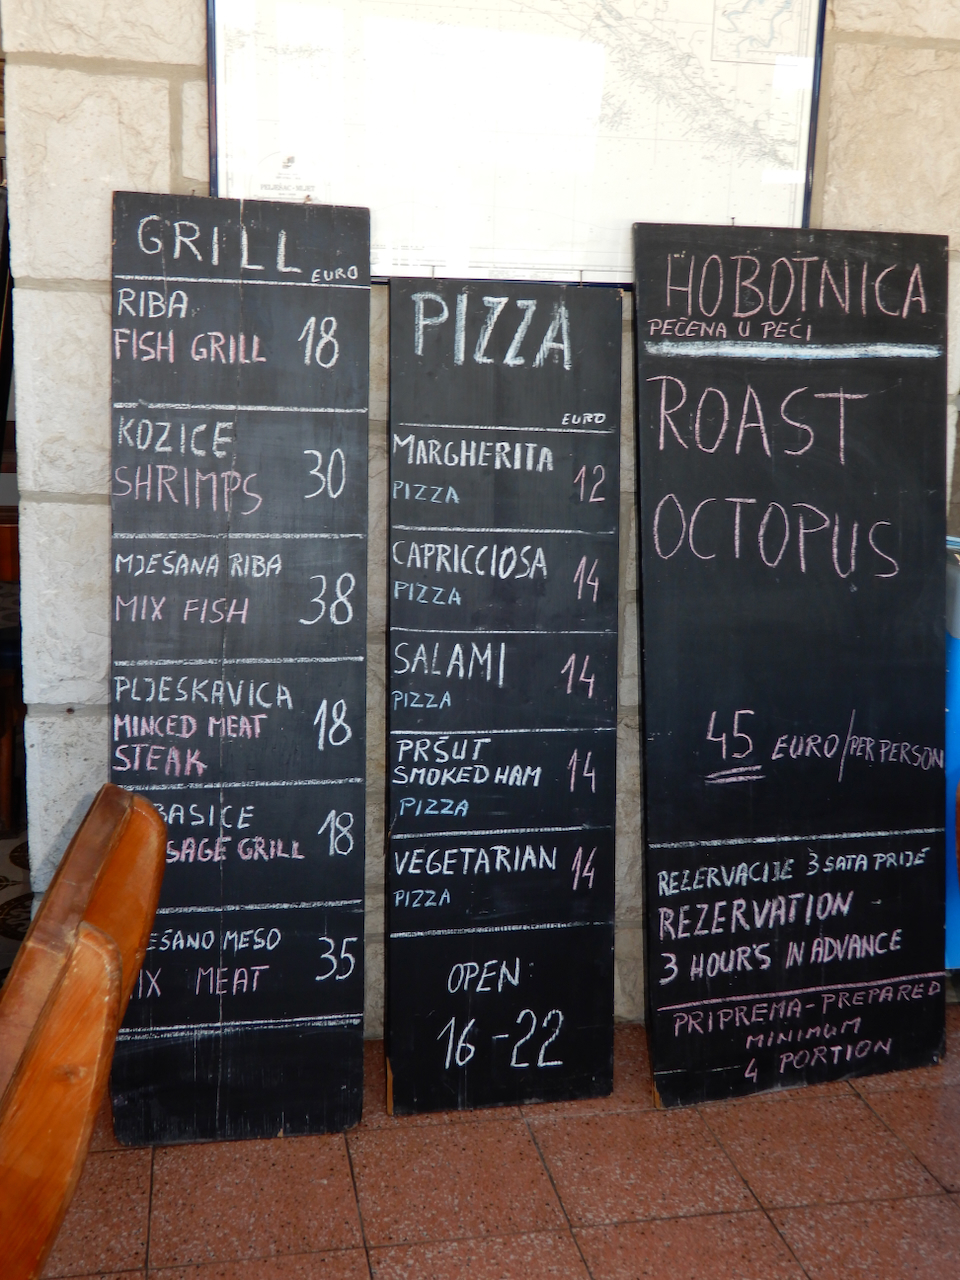 GRILL
EURO
RIBA
FISH GRILL 18
KOZICE
SHRIMPS 30
MJEŠANA RIBA
MIX FISH 38
PLJESKAVICA
MINCED MEAT 18
STEAK
BASICE
SAGE GRILL 18
EŠANO MESO
IX MEAT 35
PIZZA
EURO
MARGHERITA
PIZZA 12
CAPRICCIOSA
PIZZA 14
SALAMI
PIZZA 14
PRŠUT
SMOKED HAM 14
PIZZA
VEGETARIAN
PIZZA 14
OPEN:
16-22
HOBOTNICA
PEČENA U PEĆI
ROAST
OCTOPUS
45 EURO/PER PERSON
REZERVACIJE 3 SATA PRIJE
REZERVATION
3 HOUR'S IN ADVANCE
PRIPREMA-PREPARED
MINIMUM
4 PORTION